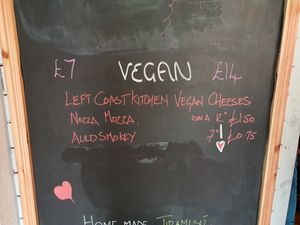 £7 VEGAN £14
LEFT COAST KITCHEN VEGAN CHEESES
NOZZA MOZZA. ON A 12" £1.50
AULD SMOKEY 7" £0.75
HOME MADE TIRAMISÚ